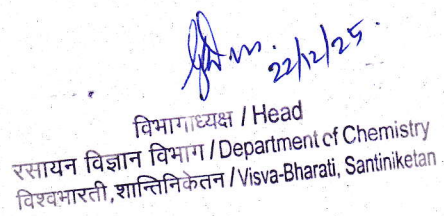 22/12/25.
विभागाध्यक्ष / Head
रसायन विज्ञान विभाग / Department of Chemistry
विश्वभारती, शान्तिनिकेतन / Visva-Bharati, Santiniketan